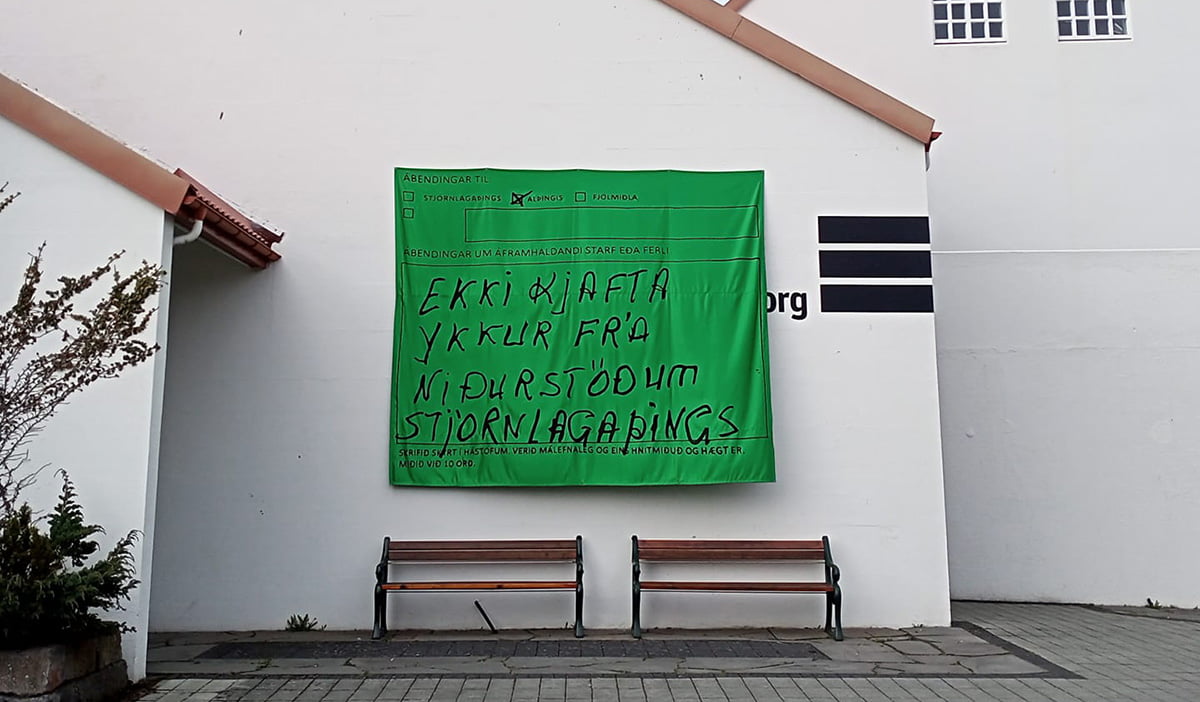 ÁBENDINGAR TIL
STJÓRNLAGAÞINGS ALÞINGIS FJÖLMIÐLA
ÁBENDINGAR UM ÁFRAMHALDANDI STARF EÐA FERLI
EKKI KJAFTA
YKKUR FRÁ
NIÐURSTÖÐUM
STJÓRNLAGAÞINGS
SKRIFIÐ SKÝRT Í HÁSTÖFUM. VERIÐ MÁLEFNALEG OG EINS HNITMIÐUÐ OG HÆGT ER.
MIÐIÐ VIÐ 10 ORÐ.
org